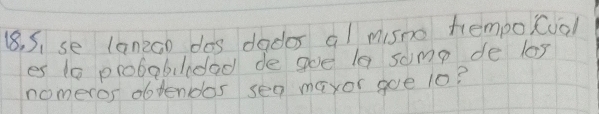 18.Si se lanzan dos dados al mismo tiempo ¿Cual
es la probabilidad de que la suma de los
numeros obtenidos sea mayor que 10?